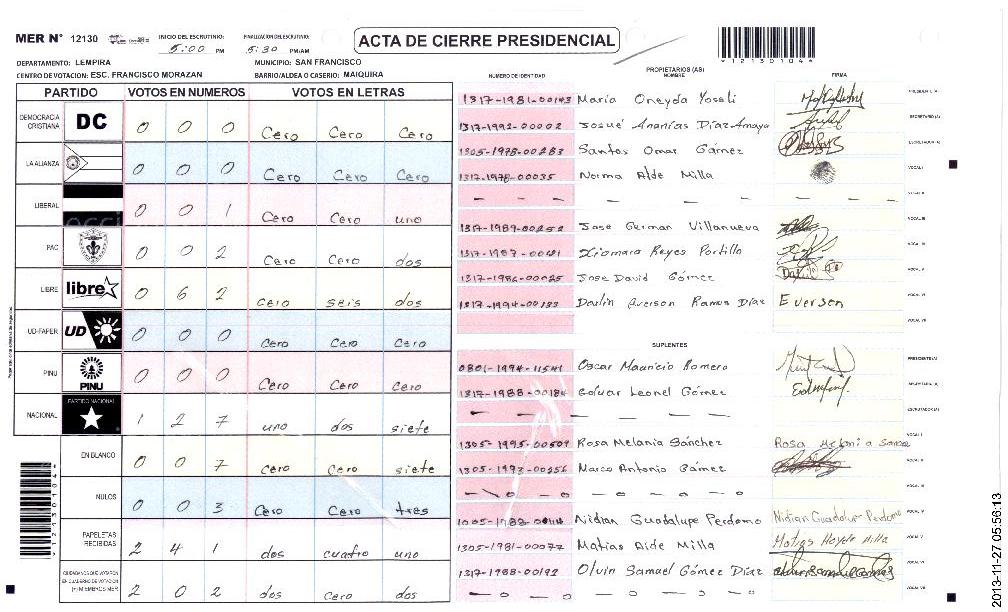 MER N° 12130
INICIO DEL ESCRUTINIO: 5:00 PM
FINALIZACIÓN DEL ESCRUTINIO: 5:30 PM/AM
ACTA DE CIERRE PRESIDENCIAL
*12130104*
DEPARTAMENTO: LEMPIRA
MUNICIPIO: SAN FRANCISCO
CENTRO DE VOTACION: ESC. FRANCISCO MORAZAN
BARRIO/ALDEA O CASERIO: MAIQUIRA
PARTIDO VOTOS EN NUMEROS VOTOS EN LETRAS
DEMOCRACIA CRISTIANA DC 0 0 0 Cero Cero Cero
LA ALIANZA 0 0 0 Cero Cero Cero
LIBERAL 0 0 1 Cero Cero uno
PAC 0 0 2 Cero Cero dos
LIBRE libre 0 6 2 Cero seis dos
UD-FAPER UD 0 0 0 Cero Cero Cero
PINU PINU 0 0 0 Cero Cero Cero
NACIONAL PARTIDO NACIONAL 1 2 7 uno dos siete
EN BLANCO 0 0 7 Cero Cero siete
NULOS 0 0 3 Cero Cero tres
PAPELETAS RECIBIDAS 2 4 1 dos cuatro uno
CIUDADANOS QUE VOTARON EN CUADERNO DE VOTACION (+) MIEMBROS MER 2 0 2 dos Cero dos
NUMERO DE IDENTIDAD PROPIETARIOS (AS) NOMBRE FIRMA
1317-1981-00143 Maria Oneyda Yoseli PRESIDENTE (A)
1317-1992-00002 Josué Ananías Díaz Amaya SECRETARIO (A)
1305-1978-00283 Santos Omar Gámez ESCRUTADOR (A)
1317-1978-00035 Norma Aide Milla VOCAL I
VOCAL II
1317-1989-00252 Jose German Villanueva VOCAL III
Xiomara Reyes Portillo
Jose David Gómez VOCAL V
1317-1994-00133 Ramos Díaz Everson VOCAL VI
VOCAL VII
SUPLENTES
0801-1994-11541 Oscar Mauricio Romero PRESIDENTE (A)
1317-1988-00184 Leonel Gómez SECRETARIO (A)
ESCRUTADOR (A)
1305-1995-00509 Rosa Melania Sánchez VOCAL I
1305-1973-00256 Marco Antonio Gámez VOCAL II
VOCAL III
Nidian Guadalupe Perdomo Nidian Guadalupe Perdomo
1305-1981-00077 Matias Aide Milla Matias Hayde Milla VOCAL V
1317-1988-00192 Olvin Samuel Gómez Díaz VOCAL VI
VOCAL VII
2013-11-27 05:56:13